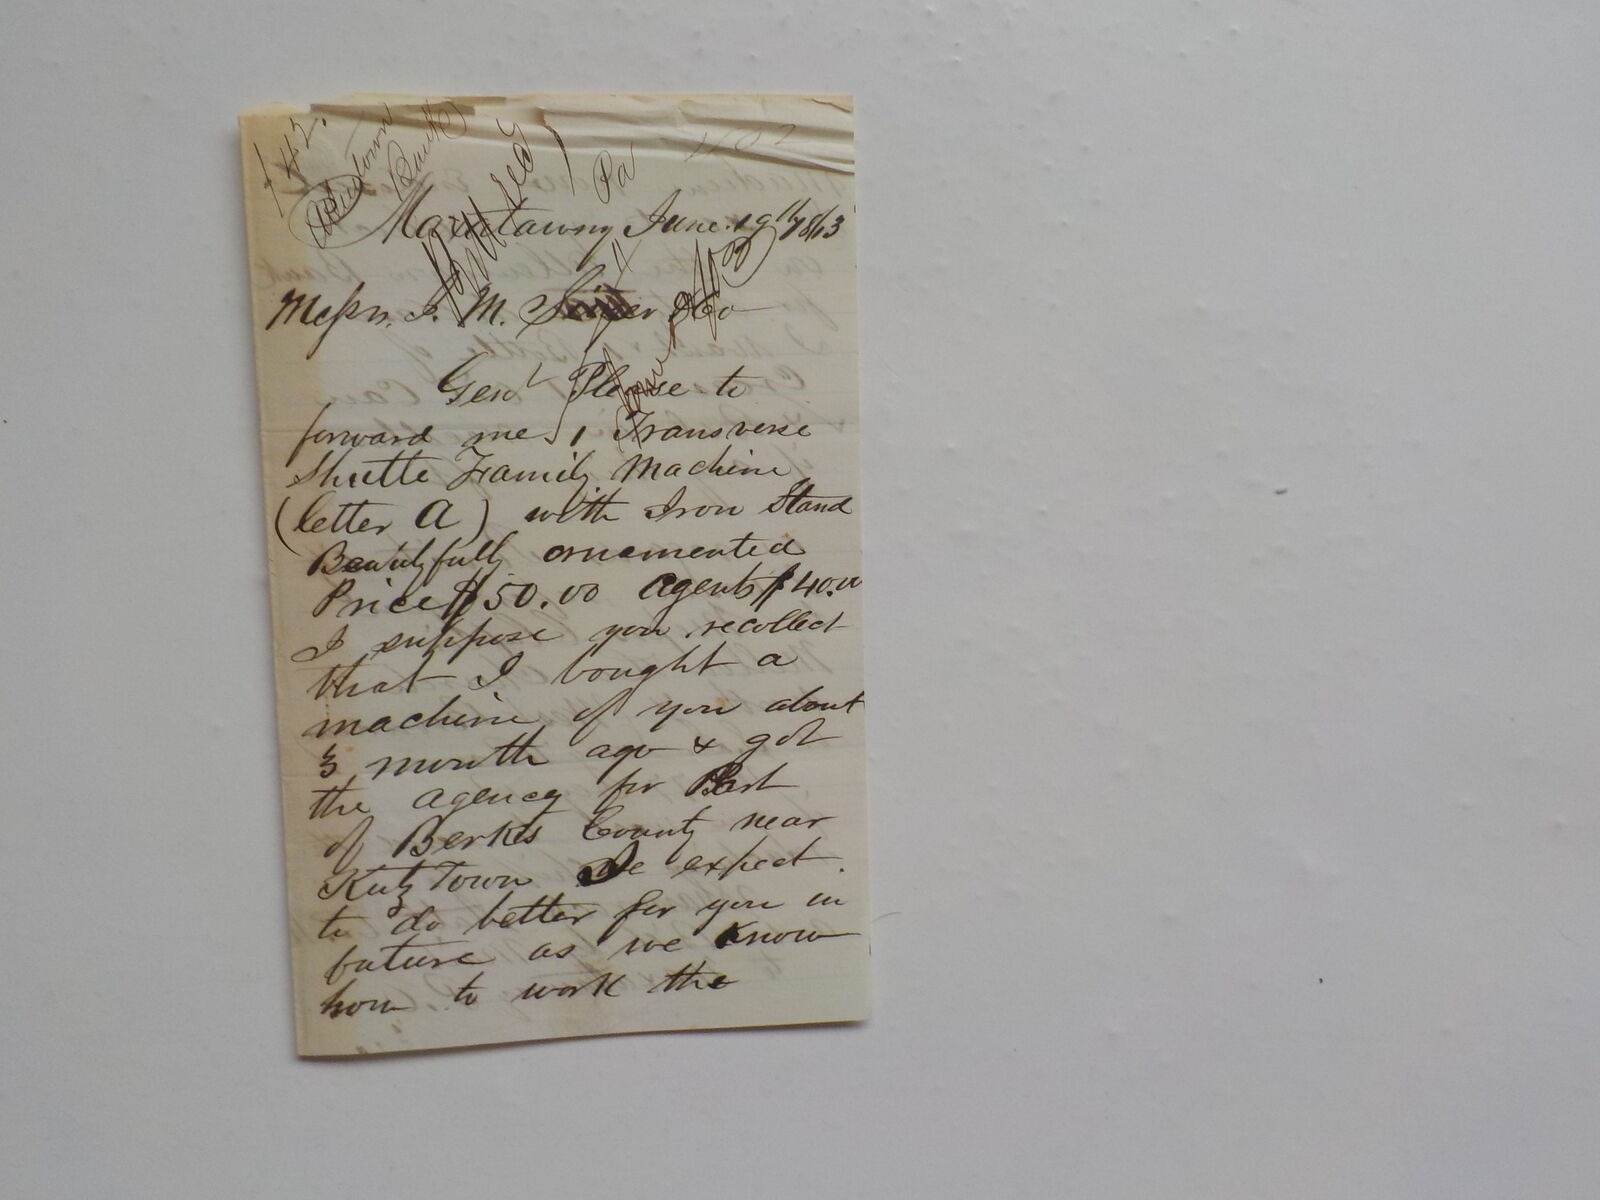 $42.
Bank
Pa
Maxatawny June 19th 1863
Messrs. I. M. Singer & Co
Gent Please to
forward me 1 Transverse
Shuttle Family Machine
(letter A) with Iron Stand
Beautyfully ornamented
Price $50.00 Agents $40.00
I suppose you recollect
that I bought a
machine of you about
3 month ago & got
the agency for Part
of Berks County near
KutzTown We expect
to do better for you in
future as we know
how to work the